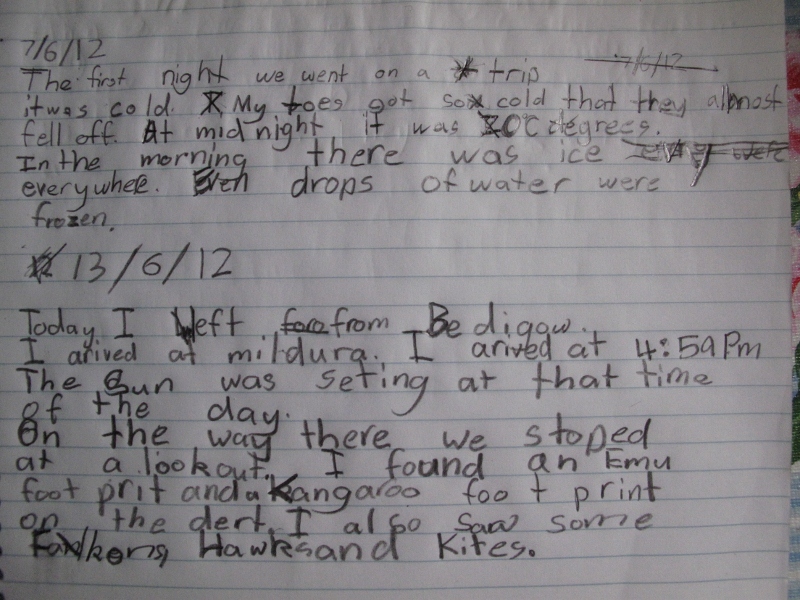 7/6/12
The first night we went on a trip 7/6/12
it was cold. My toes got so cold that they almost
fell off. At midnight it was 0C degrees.
In the morning there was ice
everywhee. Even drops of water were
frozen.
13/6/12
Today I left from Bedigow.
I arived at mildura. I arived at 4:59Pm
The Sun was seting at that time
of the day.
On the way there we stoped
at a lookout. I found an Emu
foot prit and a Kangaroo foot print
on the dert. I also saw some
Falkons Hawks and Kites.